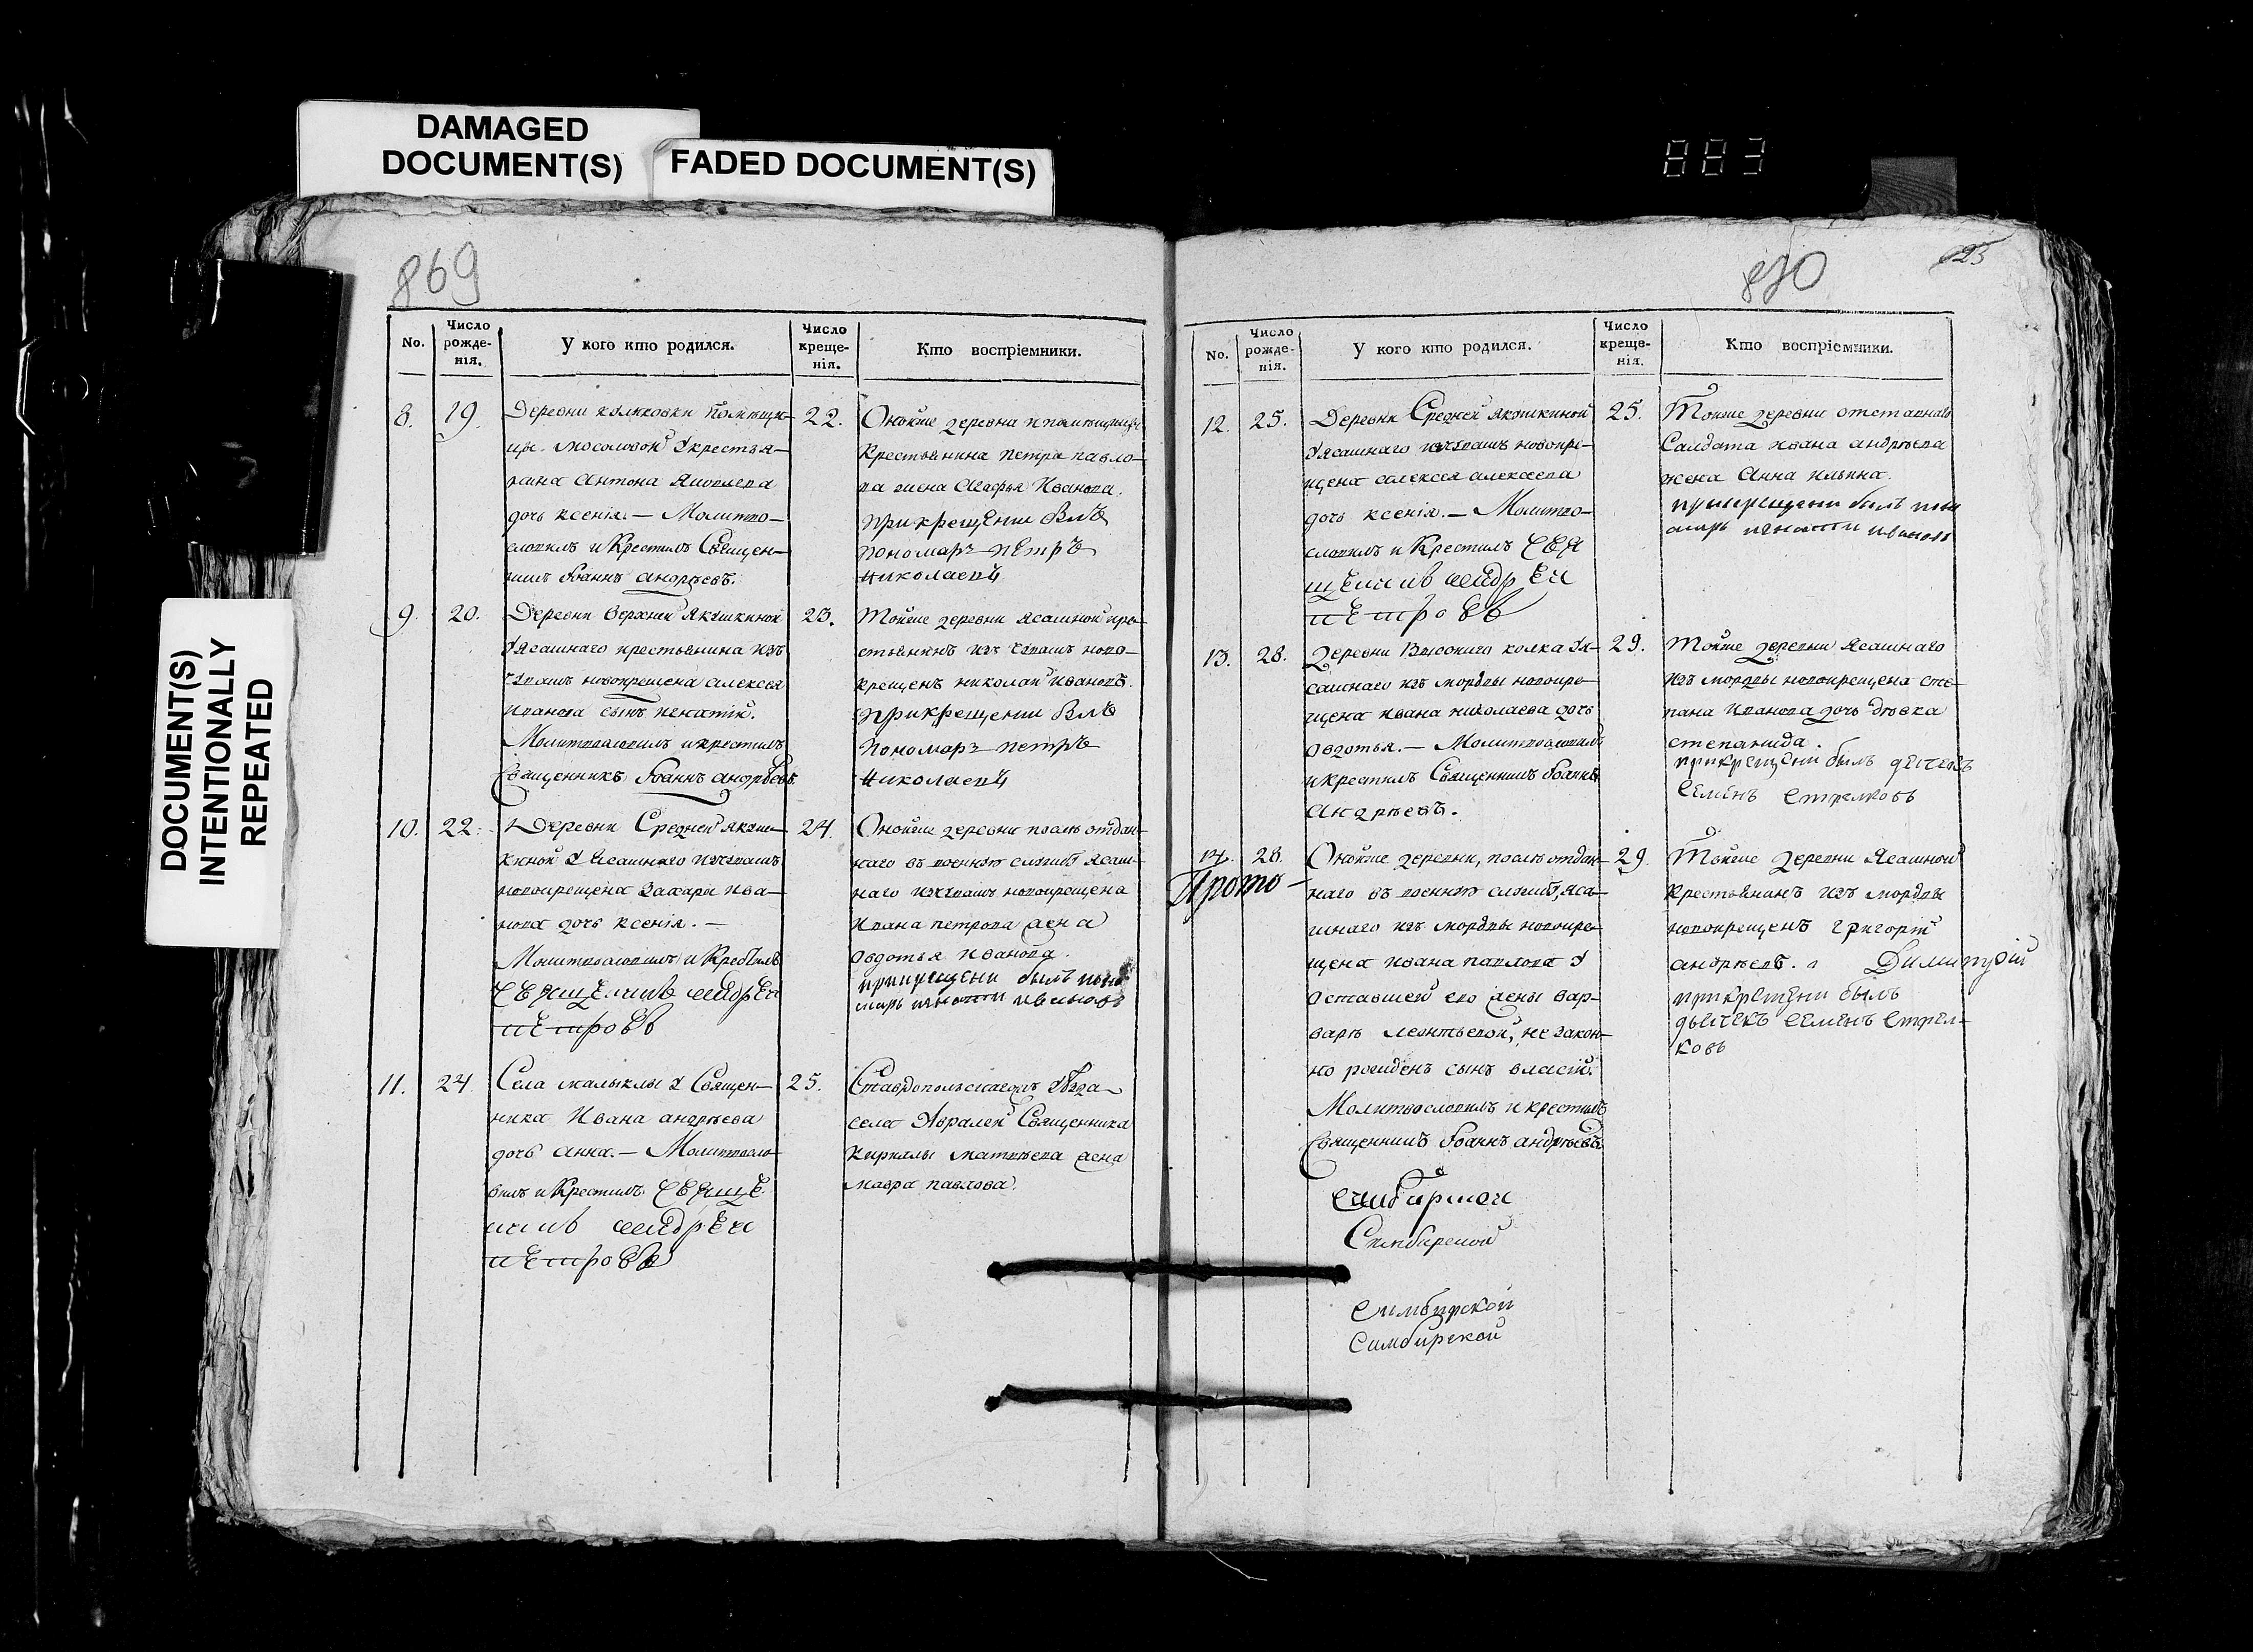 DAMAGED
DOCUMENT(S)
FADED DOCUMENT(S)
883
DOCUMENT(S)
INTENTIONALLY
REPEATED
869
No.
Число рожде-нія.
У кого кто родился.
Число креще-нія.
Кто воспріемники.
8. 19.
Деревни помѣщи-
цы Мосоловой у крестья-
нина Антона Яковлева
дочь Ксенія. — Молитво-
словилъ и Крестилъ Священ-
никъ Іоаннъ Андрѣевъ.
22.
Оной же деревни помѣщицы
Крестьянина Петра Павло-
ва жена Агафья Иванова.
При крещении былъ
пономарь Петръ
Николаевъ
9. 20.
Деревни Верхней Якушкиной
у ясашнаго крестьянина изъ
чувашъ новокрещена Алексея
Иванова сынъ Игнатій.
Молитвословилъ и крестилъ
Священникъ Іоаннъ Андрѣевъ
23.
Той же деревни ясашной кре-
стьянинъ изъ чувашъ ново-
крещенъ Николай Ивановъ.
При крещении былъ
пономарь Петръ
Николаевъ
10. 22.
Деревни Средней Якуш-
киной у Ясашнаго изъ чувашъ
новокрещена Захара Ива-
нова дочь Ксенія. —
Молитвословилъ и Крестилъ
Священникъ Андрей
Петровъ
24.
Оной же деревни послѣ отдан-
наго въ военную службу ясаш-
наго изъ чувашъ новокрещена
Ивана Петрова жена
Овдотья Иванова.
при крещени былъ поно
марь Игнати Ивановъ
11. 24.
Села Малыклы у Священ-
ника Ивана Андрѣева
дочь Анна. — Молитвосло-
вилъ и Крестилъ Священ
никъ Андрей
Петровъ
25.
Ставропольскаго уѣзда
села Священника
Кирилы Матвѣева жена
Мавра Павлова.
870
25
No.
Число рожде-нія.
У кого кто родился.
Число креще-нія.
Кто воспріемники.
12. 25.
Деревни Средней Якушкиной
у ясашнаго изъ чувашъ новокре-
щена Алексея Алексеева
дочь Ксенія. — Молитво-
словилъ и Крестилъ Свя
щенникъ Андрей
Петровъ
25.
Той же деревни отставнаго
Салдата Ивана Андрѣева
жена Анна Ильина.
при крещени былъ поно
марь Игнати Ивановъ
13. 28.
Деревни Высокаго колка у я-
сашнаго изъ мордвы новокре-
щена Ивана Николаева дочь
Овдотья. — Молитвословилъ
и крестилъ Священникъ Іоаннъ
Андрѣевъ.
29.
Той же деревни Ясашнаго
изъ мордвы новокрещена Сте-
пана Иванова дочь дѣвка
Степанида.
при крещени былъ дьячекъ
Семенъ Стрелковъ
14. 28.
Прото-
Оной же деревни, послѣ отдан-
наго въ военную службу, яса-
шнаго изъ мордвы новокре-
щена Ивана Павлова у
оставшей его жены Вар-
вары Леонтьевой, не закон-
но рожденъ сынъ Власій.
Молитвословилъ и крестилъ
Священникъ Іоаннъ Андрѣевъ
29.
Той же деревни Ясашной
Крестьянинъ изъ мордвы
новокрещенъ Григорій
Андрѣевъ. Димитрій
при крещени былъ
дьячекъ Семенъ Стрел-
ковъ
Симбирской
Симбирской
Симбирской
Симбирской